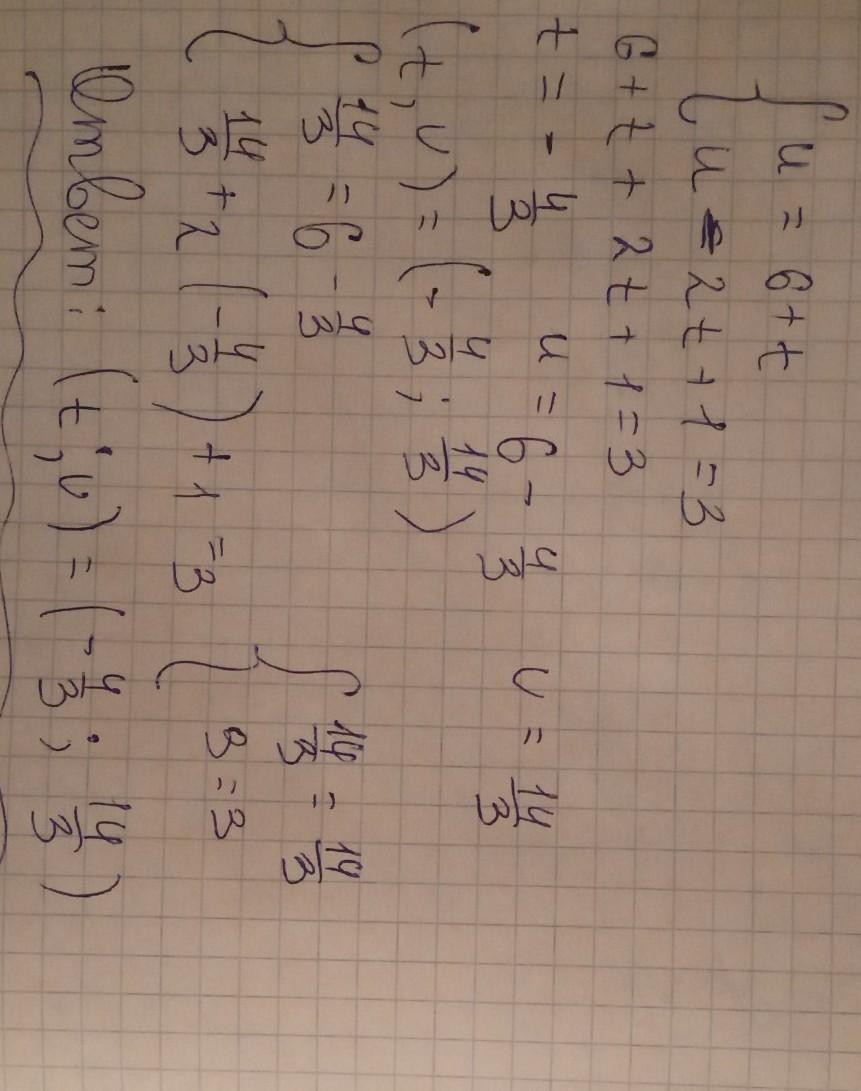 { u = 6 + t
{ u - 2t + 1 = 3
6 + t + 2t + 1 = 3
t = - 4/3 u = 6 - 4/3 u = 14/3
(t, u) = (- 4/3; 14/3)
{ 14/3 = 6 - 4/3 { 14/3 = 14/3
{ 14/3 + 2 (- 4/3) + 1 = 3 { 3 = 3
Ответ: (t; u) = (- 4/3; 14/3)